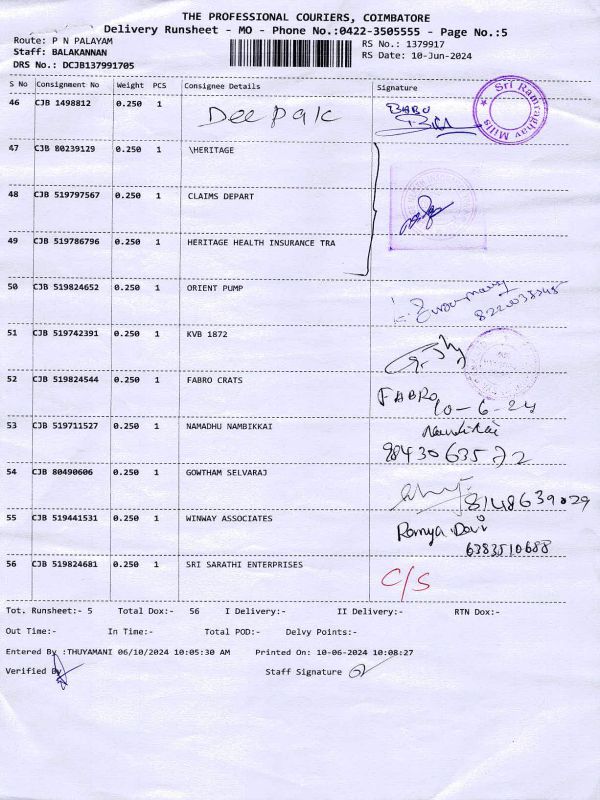 THE PROFESSIONAL COURIERS, COIMBATORE
Delivery Runsheet - MO - Phone No.:0422-3505555 - Page No.:5
Route: P N PALAYAM
RS No.: 1379917
Staff: BALAKANNAN
RS Date: 10-Jun-2024
DRS No.: DCJB137991705
S No Consignment No Weight PCS Consignee Details Signature
46 CJB 1498812 0.250 1 Deepak BABU
Sri Ramraghav Mills
47 CJB 80239129 0.250 1 \HERITAGE
48 CJB 519797567 0.250 1 CLAIMS DEPART
49 CJB 519786796 0.250 1 HERITAGE HEALTH INSURANCE TRA
50 CJB 519824652 0.250 1 ORIENT PUMP
51 CJB 519742391 0.250 1 KVB 1872
52 CJB 519824544 0.250 1 FABRO CRATS FABRO
10-6-24
53 CJB 519711527 0.250 1 NAMADHU NAMBIKKAI
9843063572
54 CJB 80490606 0.250 1 GOWTHAM SELVARAJ 8148639029
55 CJB 519441531 0.250 1 WINWAY ASSOCIATES Ramya Devi
6383510688
56 CJB 519824681 0.250 1 SRI SARATHI ENTERPRISES C/S
Tot. Runsheet:- 5 Total Dox:- 56 I Delivery:- II Delivery:- RTN Dox:-
Out Time:- In Time:- Total POD:- Delvy Points:-
Entered By :THUYAMANI 06/10/2024 10:05:30 AM Printed On: 10-06-2024 10:08:27
Verified By Staff Signature